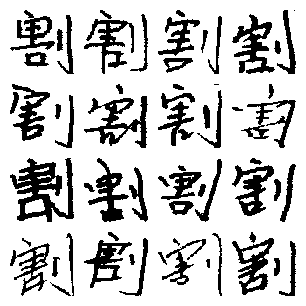 割割割割
割割割割
割割割割
割割割割